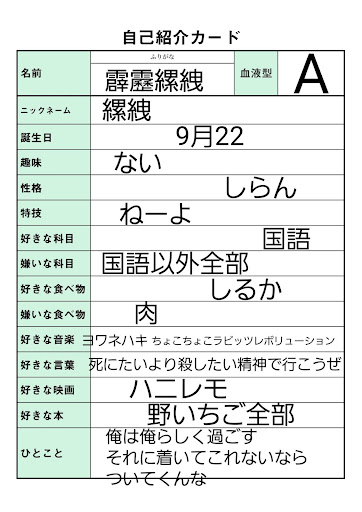 自己紹介カード
ふりがな
名前 霹靂縲絏 血液型 A
ニックネーム 縲絏
誕生日 9月22
趣味 ない
性格 しらん
特技 ねーよ
好きな科目 国語
嫌いな科目 国語以外全部
好きな食べ物 しるか
嫌いな食べ物 肉
好きな音楽 ヨワネハキ ちょこちょこラビッツレボリューション
好きな言葉 死にたいより殺したい精神で行こうぜ
好きな映画 ハニレモ
好きな本 野いちご全部
ひとこと 俺は俺らしく過ごす
それに着いてこれないなら
ついてくんな